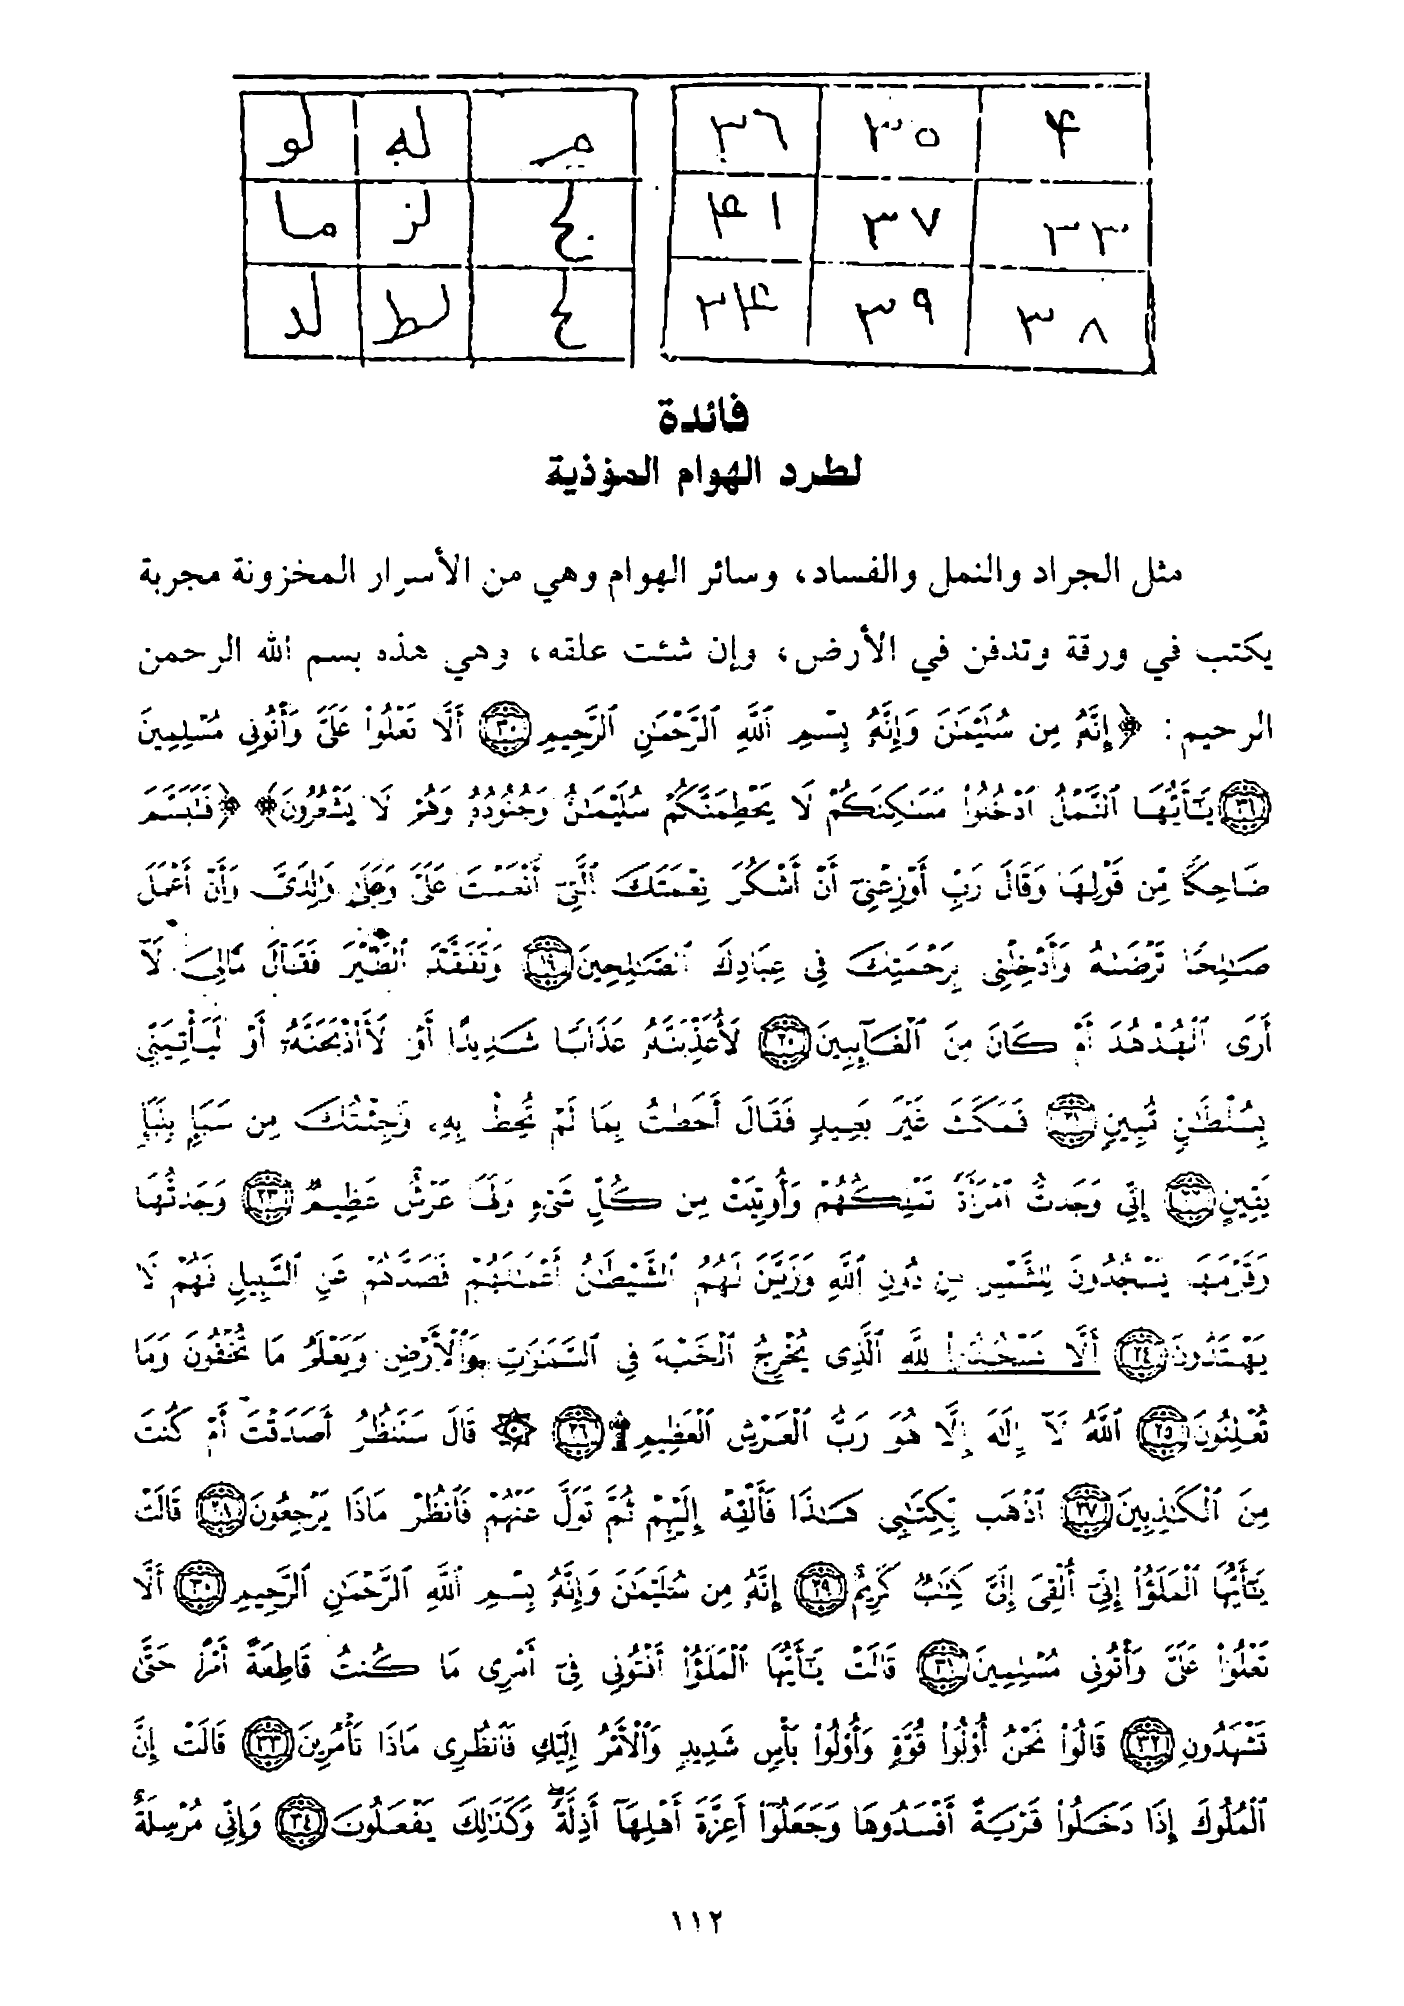 ٣٦ ٣٥ ۴
۴١ ٣٧ ٣٣
٣۴ ٣٩ ٣٨
لو له م
ما لز لج
لد لط لح
فائدة
لطرد الهوام المؤذية
مثل الجراد والنمل والفساد، وسائر الهوام وهي من الأسرار المخزونة مجربة
يكتب في ورقة وتدفن في الأرض، وإن شئت علقه، وهي هذه بسم الله الرحمن
الرحيم: ﴿إِنَّهُ مِن سُلَيْمَٰنَ وَإِنَّهُ بِسْمِ ٱللَّهِ ٱلرَّحْمَٰنِ ٱلرَّحِيمِ ٣٠ أَلَّا تَعْلُوا۟ عَلَىَّ وَأْتُونِي مُسْلِمِينَ
٣١ يَٰٓأَيُّهَا ٱلنَّمْلُ ٱدْخُلُوا۟ مَسَٰكِنَكُمْ لَا يَحْطِمَنَّكُمْ سُلَيْمَٰنُ وَجُنُودُهُ وَهُمْ لَا يَشْعُرُونَ﴾ ﴿فَتَبَسَّمَ
ضَاحِكًا مِّن قَوْلِهَا وَقَالَ رَبِّ أَوْزِعْنِىٓ أَنْ أَشْكُرَ نِعْمَتَكَ ٱلَّتِىٓ أَنْعَمْتَ عَلَىَّ وَعَلَىٰ وَٰلِدَىَّ وَأَنْ أَعْمَلَ
صَٰلِحًا تَرْضَىٰهُ وَأَدْخِلْنِى بِرَحْمَتِكَ فِى عِبَادِكَ ٱلصَّٰلِحِينَ ١٩ وَتَفَقَّدَ ٱلطَّيْرَ فَقَالَ مَالِىَ لَآ
أَرَى ٱلْهُدْهُدَ أَمْ كَانَ مِنَ ٱلْغَآئِبِينَ ٢٠ لَأُعَذِّبَنَّهُ عَذَابًا شَدِيدًا أَوْ لَأَا۟ذْبَحَنَّهُ أَوْ لَيَأْتِيَنِّى
بِسُلْطَٰنٍ مُّبِينٍ ٢١ فَمَكَثَ غَيْرَ بَعِيدٍ فَقَالَ أَحَطتُ بِمَا لَمْ تُحِطْ بِهِۦ وَجِئْتُكَ مِن سَبَإٍ بِنَبَإٍ
يَقِينٍ ٢٢ إِنِّى وَجَدتُّ ٱمْرَأَةً تَمْلِكُهُمْ وَأُوتِيَتْ مِن كُلِّ شَىْءٍ وَلَهَا عَرْشٌ عَظِيمٌ ٢٣ وَجَدتُّهَا
وَقَوْمَهَا يَسْجُدُونَ لِلشَّمْسِ مِن دُونِ ٱللَّهِ وَزَيَّنَ لَهُمُ ٱلشَّيْطَٰنُ أَعْمَٰلَهُمْ فَصَدَّهُمْ عَنِ ٱلسَّبِيلِ فَهُمْ لَا
يَهْتَدُونَ ٢٤ أَلَّا يَسْجُدُوا۟ لِلَّهِ ٱلَّذِى يُخْرِجُ ٱلْخَبْءَ فِى ٱلسَّمَٰوَٰتِ وَٱلْأَرْضِ وَيَعْلَمُ مَا تُخْفُونَ وَمَا
تُعْلِنُونَ ٢٥ ٱللَّهُ لَآ إِلَٰهَ إِلَّا هُوَ رَبُّ ٱلْعَرْشِ ٱلْعَظِيمِ ۩ ٢٦ ۞ قَالَ سَنَنظُرُ أَصَدَقْتَ أَمْ كُنتَ
مِنَ ٱلْكَٰذِبِينَ ٢٧ ٱذْهَب بِّكِتَٰبِى هَٰذَا فَأَلْقِهْ إِلَيْهِمْ ثُمَّ تَوَلَّ عَنْهُمْ فَٱنظُرْ مَاذَا يَرْجِعُونَ ٢٨ قَالَتْ
يَٰٓأَيُّهَا ٱلْمَلَؤُا۟ إِنِّىٓ أُلْقِىَ إِلَىَّ كِتَٰبٌ كَرِيمٌ ٢٩ إِنَّهُ مِن سُلَيْمَٰنَ وَإِنَّهُ بِسْمِ ٱللَّهِ ٱلرَّحْمَٰنِ ٱلرَّحِيمِ ٣٠ أَلَّا
تَعْلُوا۟ عَلَىَّ وَأْتُونِى مُسْلِمِينَ ٣١ قَالَتْ يَٰٓأَيُّهَا ٱلْمَلَؤُا۟ أَفْتُونِى فِىٓ أَمْرِى مَا كُنتُ قَاطِعَةً أَمْرًا حَتَّىٰ
تَشْهَدُونِ ٣٢ قَالُوا۟ نَحْنُ أُو۟لُوا۟ قُوَّةٍ وَأُو۟لُوا۟ بَأْسٍ شَدِيدٍ وَٱلْأَمْرُ إِلَيْكِ فَٱنظُرِى مَاذَا تَأْمُرِينَ ٣٣ قَالَتْ إِنَّ
ٱلْمُلُوكَ إِذَا دَخَلُوا۟ قَرْيَةً أَفْسَدُوهَا وَجَعَلُوٓا۟ أَعِزَّةَ أَهْلِهَآ أَذِلَّةً ۖ وَكَذَٰلِكَ يَفْعَلُونَ ٣٤ وَإِنِّى مُرْسِلَةٌ
١١٢